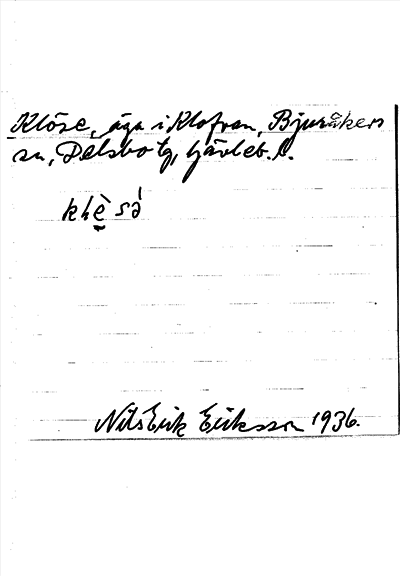 Klöse, äga i Klofven, Bjuråkers
sn, Delsbo tg, Gävleb. l.
khè sə̀
Nils Erik Eriksson 1936.